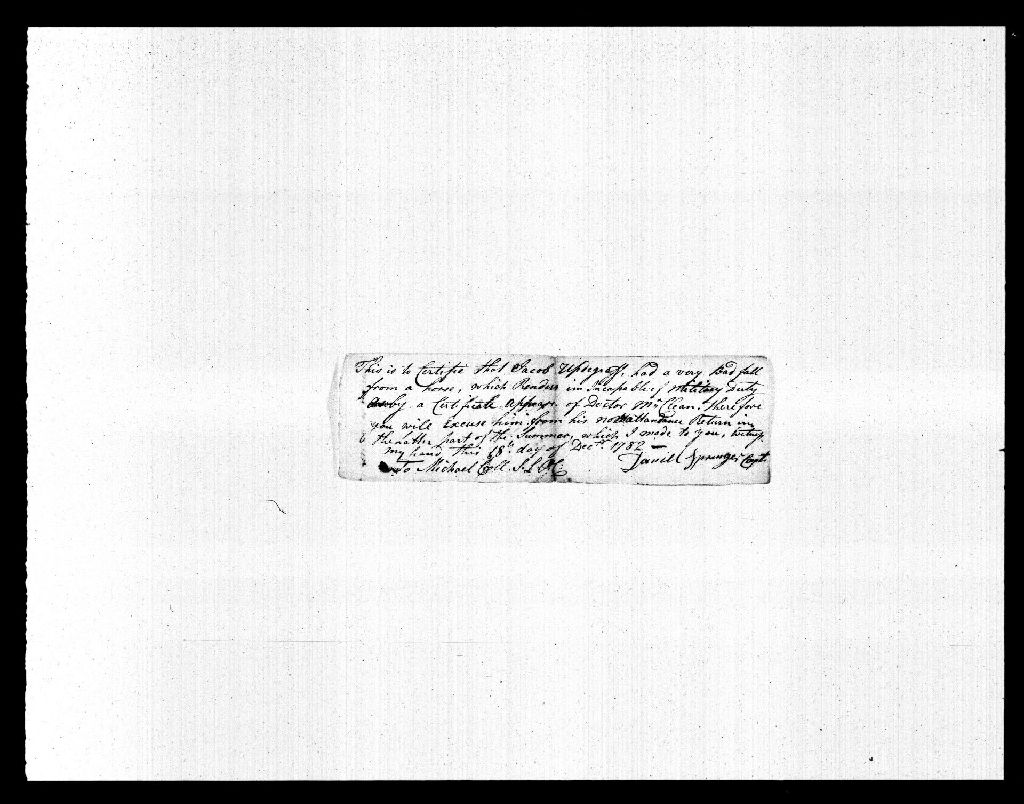 This is to Certifie that Jacob Updegraff had a very Bad fall
from a horse, which Renders im Incapable of Militery duty
as by a Certificate Appears of Doctor McClean. therefore
you will Excuse him from his nonattendance Return in
the latter part of the Summer, which I made to you, witness
my hand this 18th day of Decr 1782
To Michael S. L. Y. C. Daniel Springer Capt